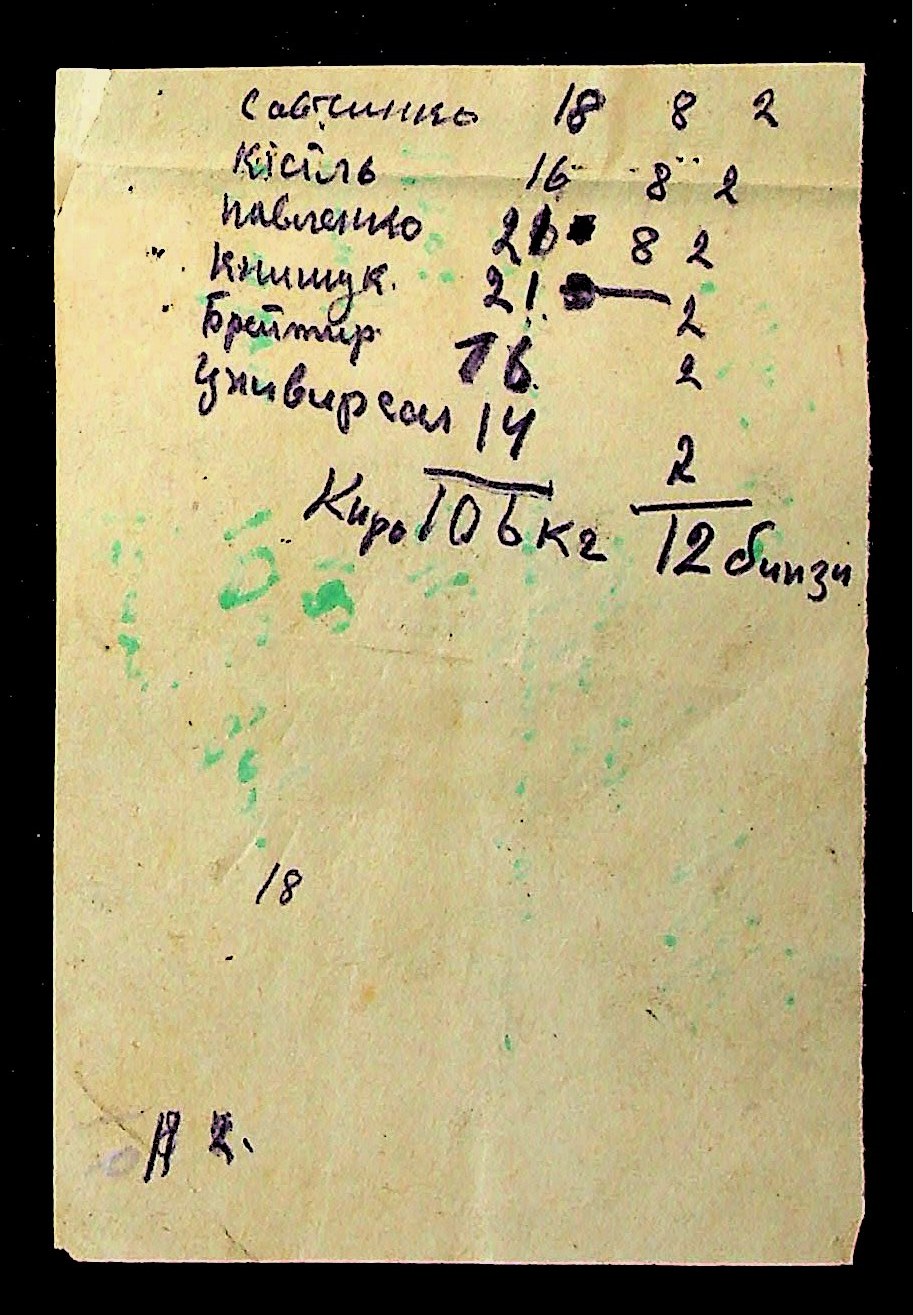 Савчинко 18 8 2
Кісіль 16 8 2
Павленко 21 8 2
Книшук. 21. — 2
16. 2
Унивирсал 14 2
Киро 106 кг 12 бинзи
18